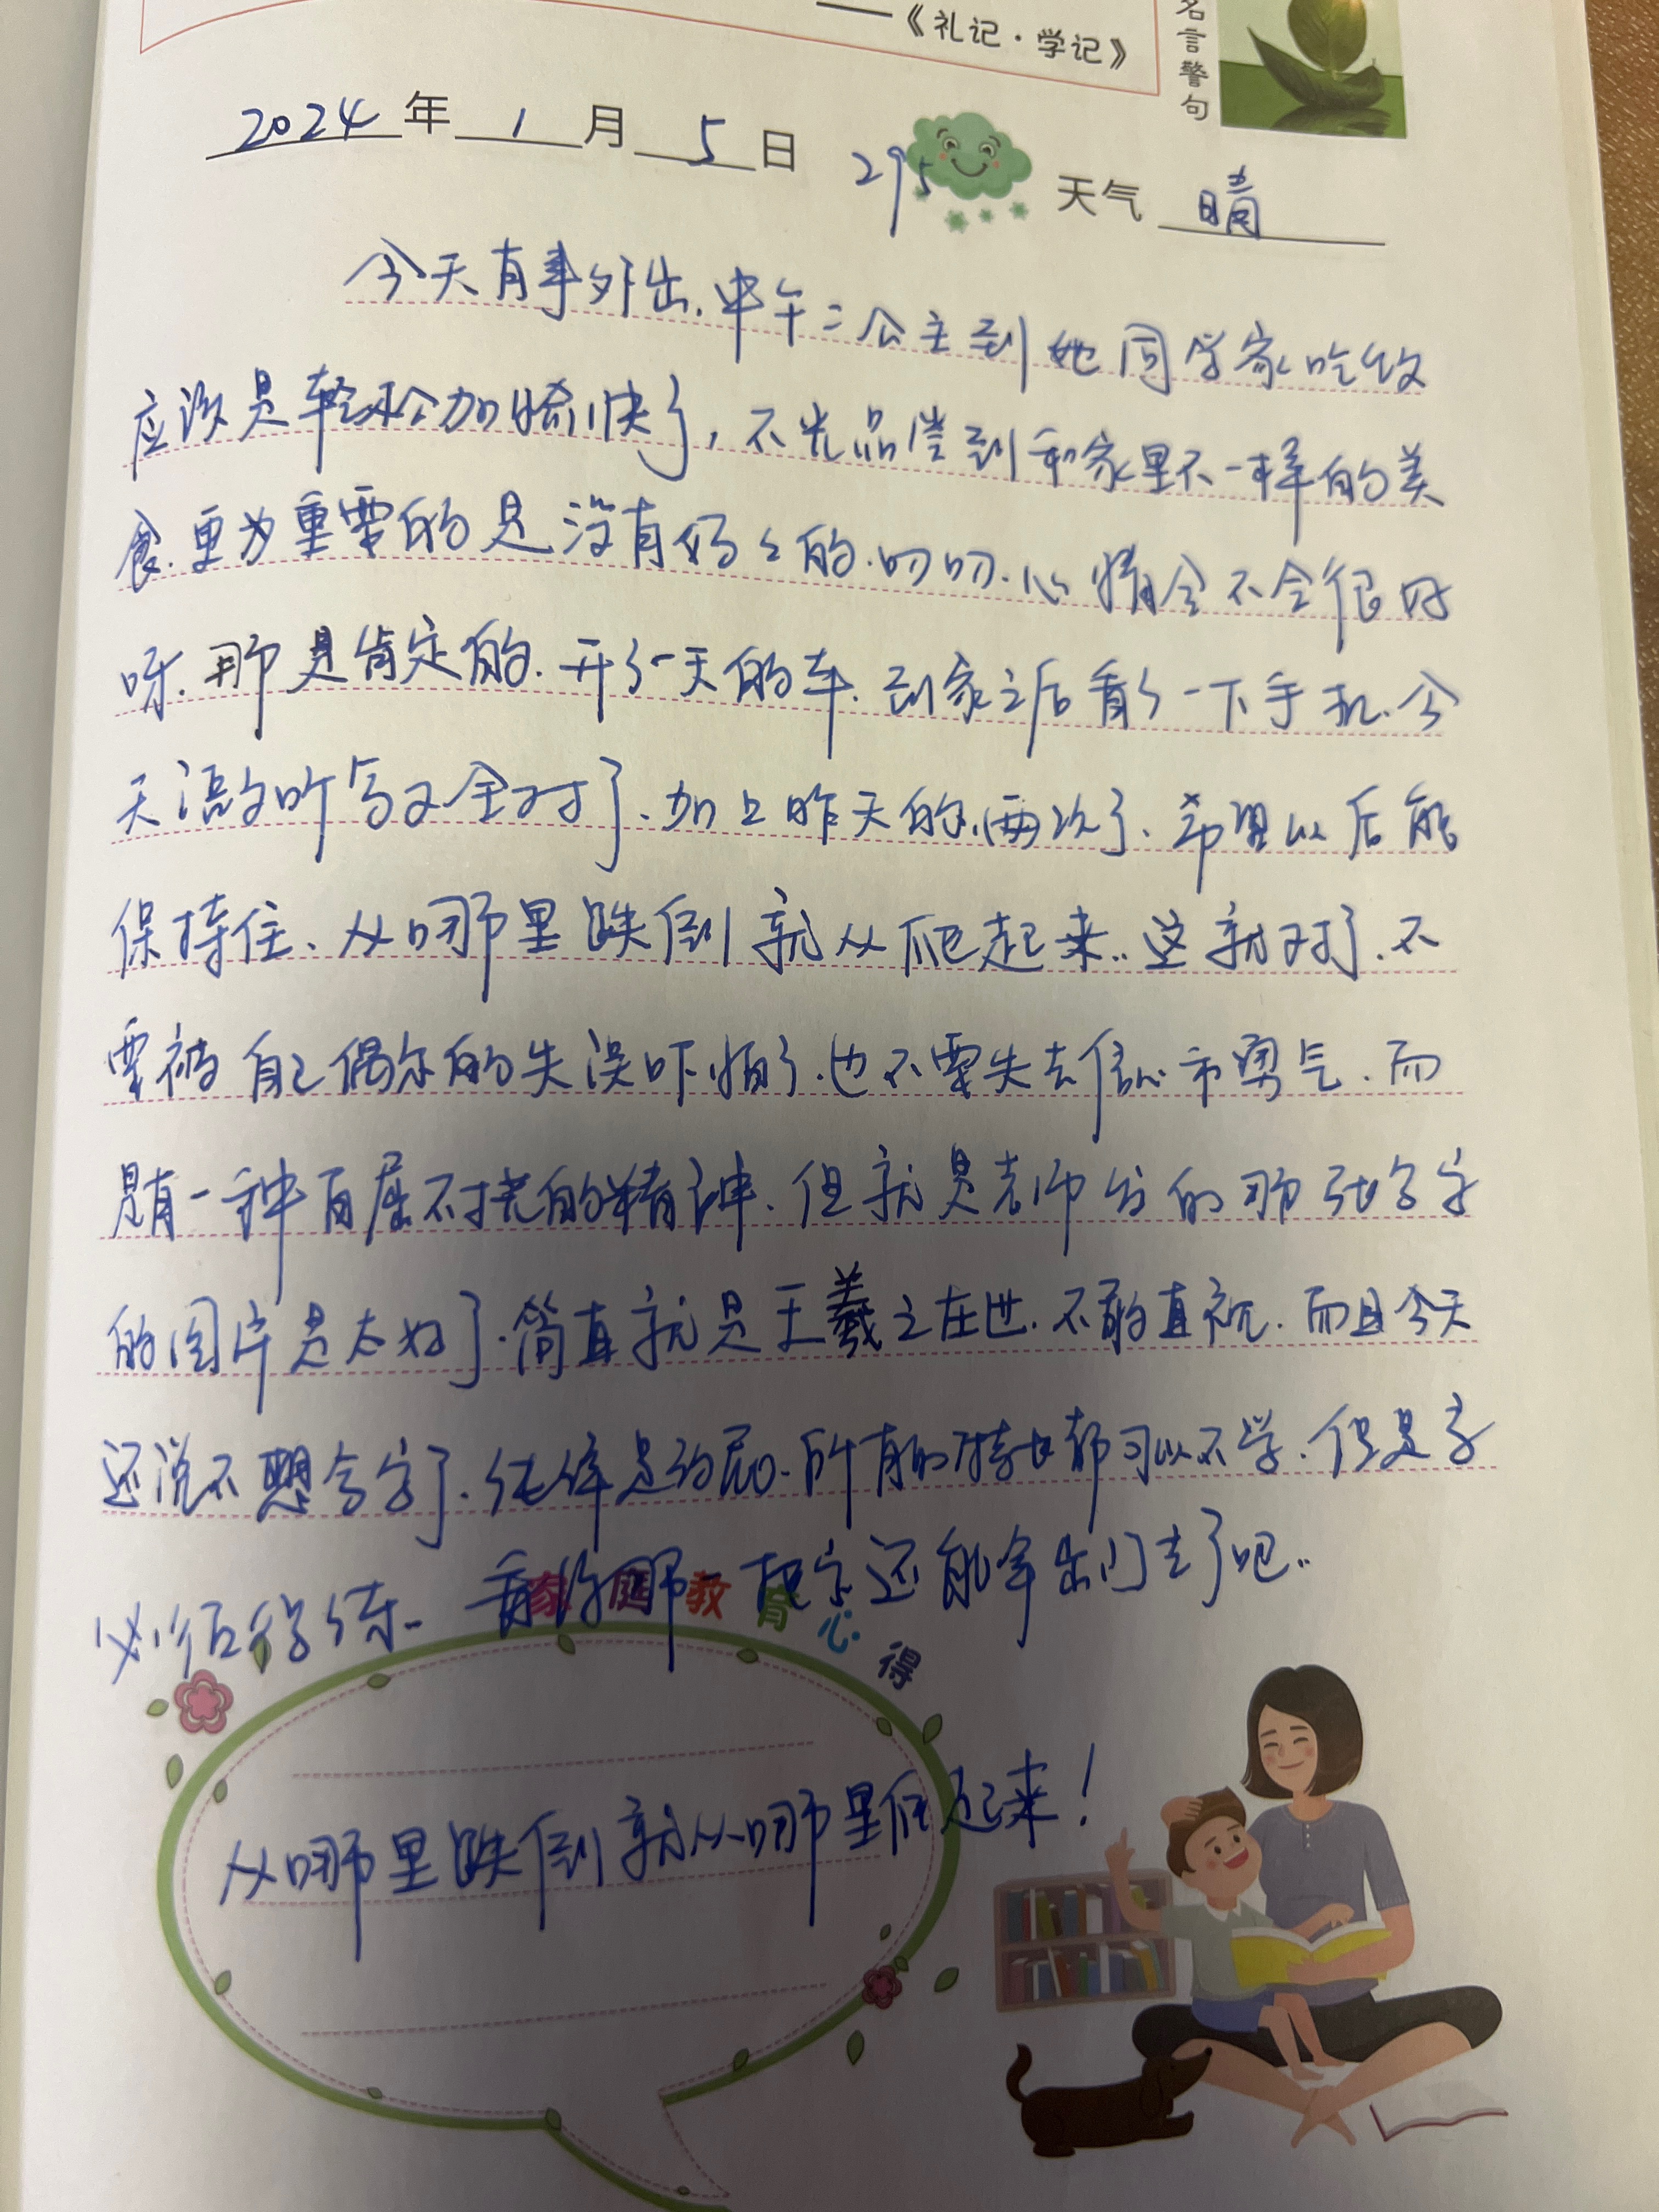 ——《礼记·学记》
名言警句
2024年1月5日 295 天气 晴
今天有事外出.中午二公主到她同学家吃饭
应该是轻松加愉快了,不光品尝到和家里不一样的美
食.更为重要的是没有妈妈的.叨叨.心情会不会很好
呀.那是肯定的.开了一天的车.到家之后看了一下手机.今
天语文听写又全对了.加上昨天的.两次了.希望以后能
保持住、从哪里跌倒就从爬起来..这就对了.不
要被自己偶尔的失误吓怕了.也不要失去信心和勇气.而
是有一种百屈不挠的精神.但就是老师发的那张写字
的图片是太好了.简直就是王羲之在世.不敢直视.而且今天
还说不想写字了.纯
所有的特长都可以不学.但是字
必须得学练. 看你那一把字还能拿出门去了吧..
家庭教育心得
从哪里跌倒就从哪里 起来!